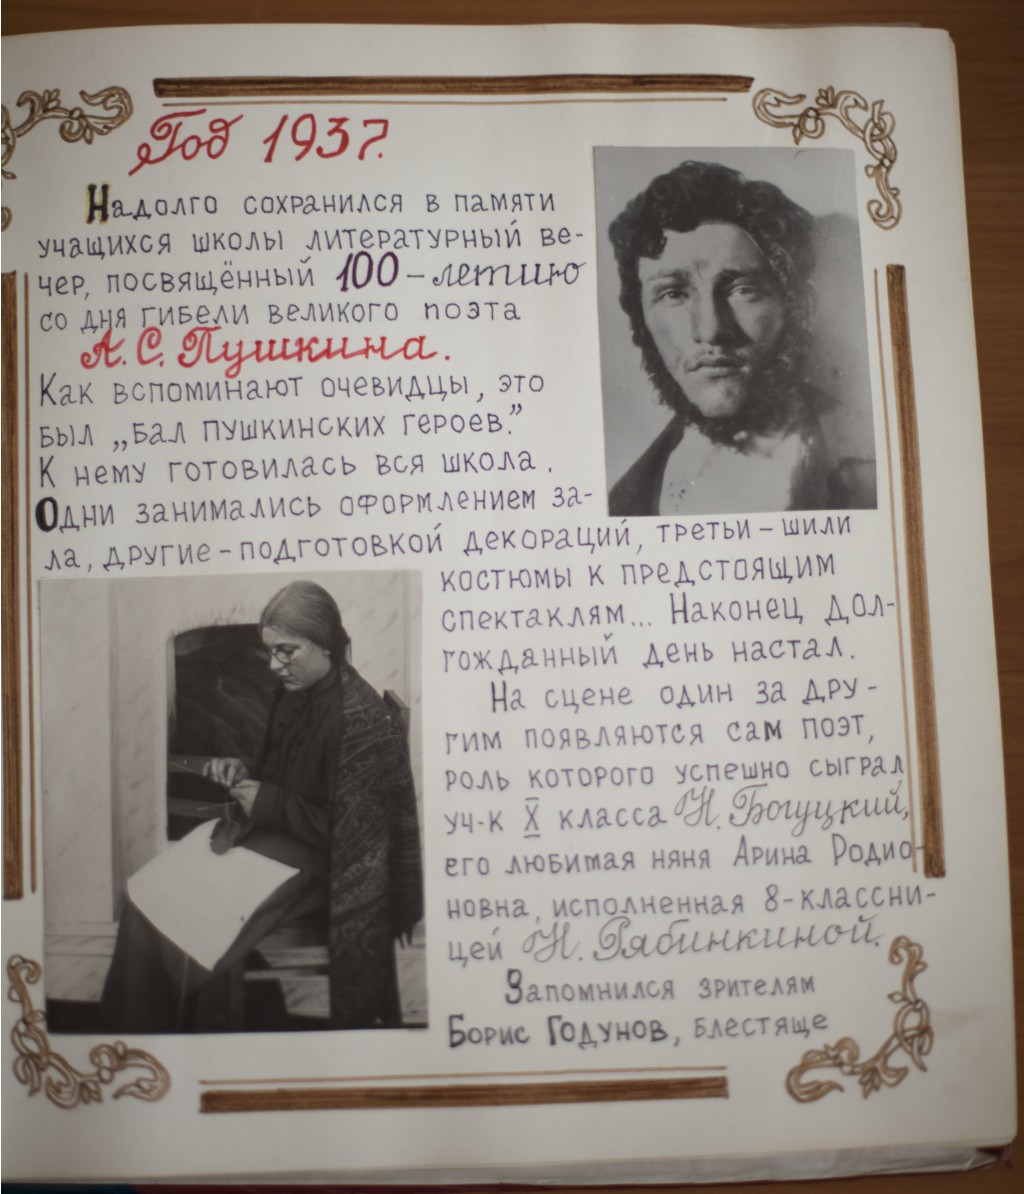 Год 1937.
Надолго сохранился в памяти
учащихся школы литературный ве-
чер, посвящённый 100-летию
со дня гибели великого поэта
А.С. Пушкина.
Как вспоминают очевидцы, это
был „Бал пушкинских героев."
К нему готовилась вся школа.
Одни занимались оформлением за-
ла, другие – подготовкой декораций, третьи – шили
костюмы к предстоящим
спектаклям... Наконец дол-
гожданный день настал.
На сцене один за дру-
гим появляются сам поэт,
роль которого успешно сыграл
уч-к X класса Н. Богуцкий,
его любимая няня Арина Родио-
новна, исполненная 8-классни-
цей Н. Рябинкиной.
Запомнился зрителям
Борис Годунов, блестяще